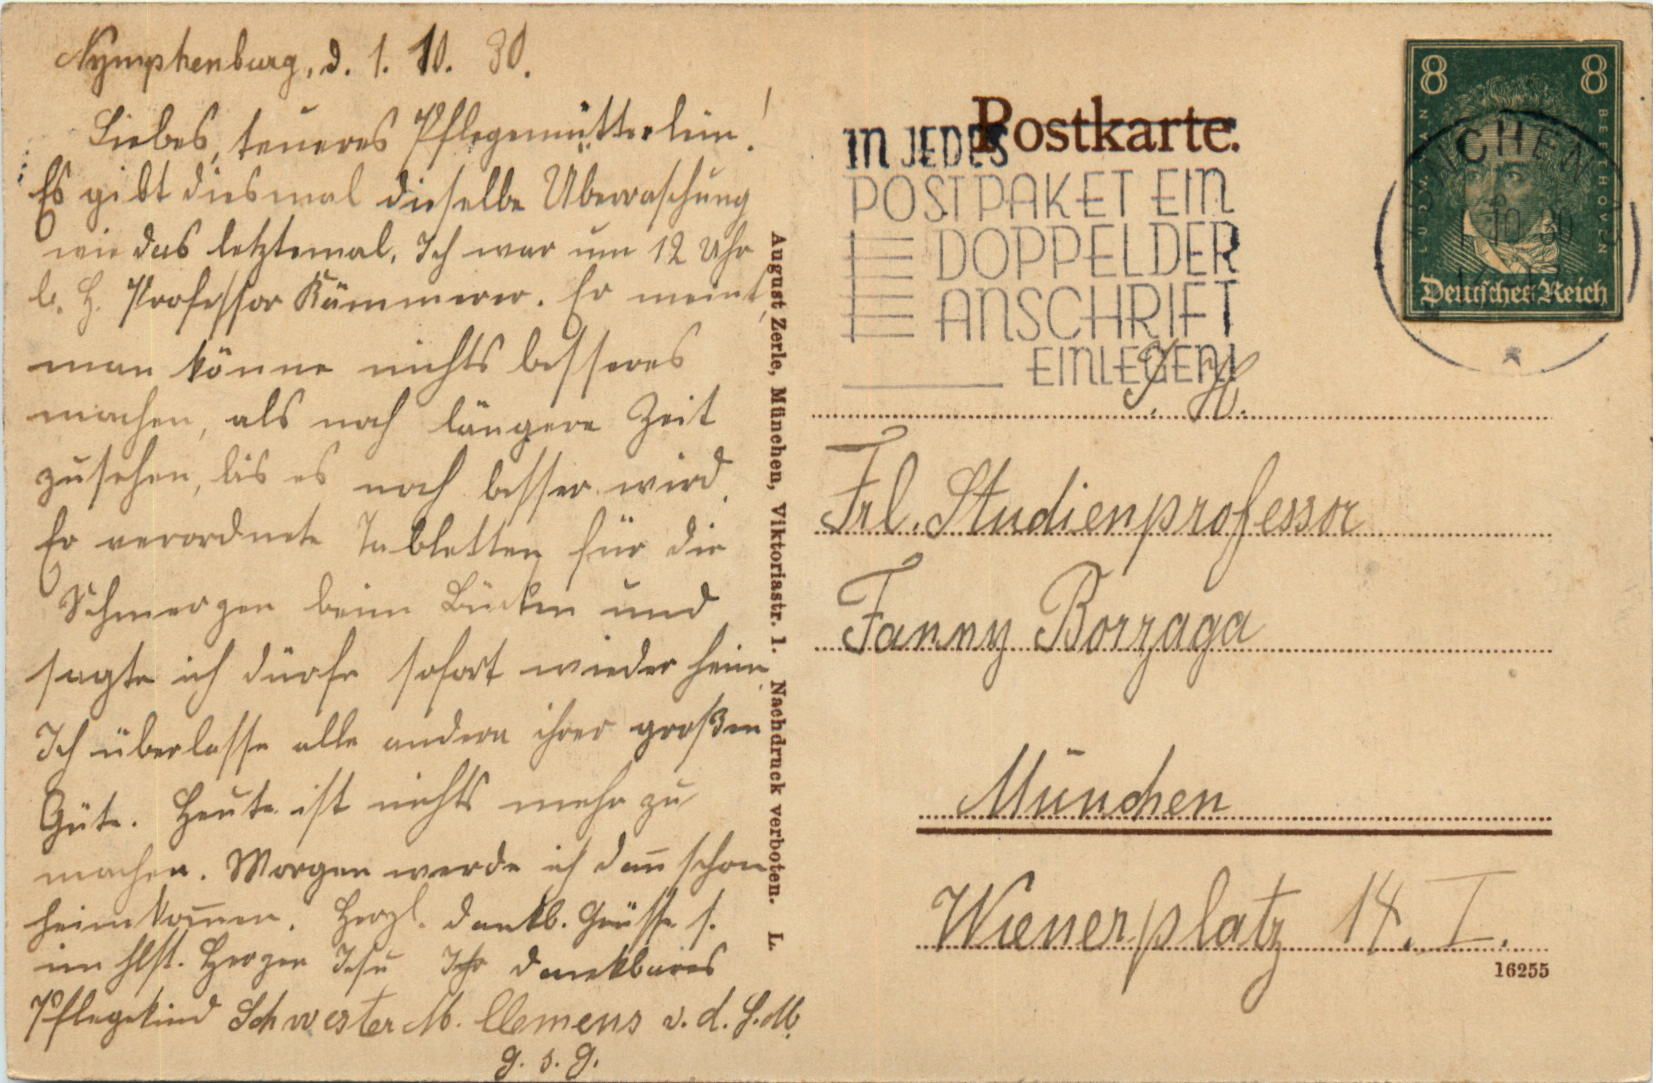 Nymphenburg, d. 1. 10. 30.
Liebes, teueres Pflegemütterlein!
Es gibt diesmal dieselbe Überraschung
wie das letztemal. Ich war um 12 Uhr
b. H. Professor Kämmerer. Er meint,
man könne nichts besseres
machen, als noch längere Zeit
zusehen, bis es noch besser wird.
Er verordnete Tabletten für die
Schmerzen beim Bücken und
sagte ich dürfe sofort wieder heim.
Ich überlasse alle andern ihrer großen
Güte. Heute ist nichts mehr zu
machen. Morgen werde ich dann schon
heimkommen. Herzl. dankb. Grüsse s.
im hlst. Herzen Jesu Ihr dankbares
Pflegekind Schwester M. Clemens v. d. H. M.
g. s. g.
August Zerle, München, Viktoriastr. 1. Nachdruck verboten. L.
Postkarte.
IN JEDES
POSTPAKET EIN
DOPPEL DER
ANSCHRIFT
EINLEGEN!
8 8
LUDW. VAN BEETHOVEN
Deutsches Reich
MÜNCHEN
1.10.30
I. H.
Frl. Studienprofessor
Fanny Borzaga
München
Wienerplatz 14. I.
16255